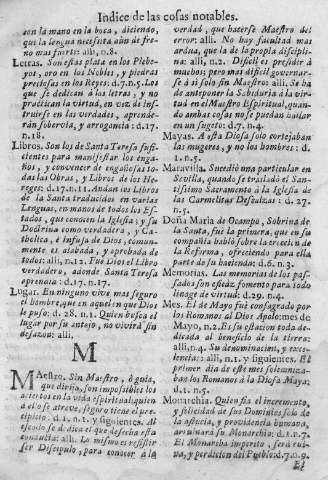 Indice de las cosas notables.
con la mano en la boca, diciendo,
que la lengua necesita aún de freno
mas fuerte: alli, n.8.
Letras. Son estas plata en los Plebeyos,
oro en los Nobles, y piedras
preciosas en los Reyes: d.7.n.5. Los
que se dedican à las letras, y no
practican la virtud, en vez de instruirse
en las verdades, aprenderán
sobervia, y arrogancia: d.17.
n.18.
Libros. Son los de Santa Teresa suficientes
para manifestar los engaños,
y convencer de engañosas todas
las Obras, y Libros de los Hereges:
d.17.n.11. Andan los Libros
de la Santa traducidos en varias
Lenguas, en manos de todos los Estados,
que conocen la Iglesia: y su
Doctrina como verdadera, y Catholica,
è infusa de Dios, comunmente
es alabada, y aprobada de
todos: alli, n.12. Fue Dios el Libro
verdadero, adonde Santa Teresa
aprendia: d.17. n.17.
Lugar. En ninguno vive mas seguro
el hombre, que en aquel en que Dios
le puso: d. 28. n.1. Quien busca el
lugar por su antojo, no vivirá sin
desazon: alli.
M
Maestro. Sin Maestro, ò guia,
que dirija, son impossibles los
aciertos en la vida espiritual: quien
à ello se atreve, seguro tiene el precipicio:
d. 1. n.1. y siguientes. Al
que dice que desecha esta
conducta: alli. Lo mismo es resistir
ser Discipulo, para conocer à la
verdad, que hacerse Maestro del
error: alli. No hay facultad mas
ardua, que la de la propia disciplina:
alli, n.2. Dificil es presidir à
muchos; pero mas dificil governarse
à sí solo sin Maestro: alli. Se ha
de anteponer la Sabiduria à la virtud
en el Maestro Espiritual, quando
ambas cosas no se puedan hallar
en un sugeto: d.7. n.4.
Mayas. A esta Diosa solo cortejaban
las mugeres, y no los hombres: d.
1. n.5.
Maravilla. Sucedió una particular en
Sevilla, quando se trasladò el Santissimo
Sacramento à la Iglesia de
las Carmelitas Descalzas: d.27.
n.5.
Doña Maria de Ocampo, Sobrina de
la Santa, fue la primera, que en su
compañia hablò sobre la ereccion de
la Reforma, ofreciendo para ella
parte de su hacienda: d.6. n.3.
Memorias. Las memorias de los passados
son eficáz fomento para todo
linage de virtud: d.29. n.4.
Mes. El de Mayo fue consagrado por
los Romanos al Dios Apolo: mes de
Mayo, n.2. Es su estacion toda dedicada
al beneficio de la tierra:
alli, n.4. Su denominacion, y excelencias:
alli, n.1. y siguientes. El
primer dia de este mes solemnizaban
los Romanos à la Diosa Maya:
d.1. n.5.
Monarchia. Quien fia el incremento,
y felicidad de sus Dominios solo de
la astucia, y providencia humana,
arruinará su Monarchia: d.1.n.7.
El Monarcha imperito, será ruina,
y perdicion del Pueblo: d.7.n.9.
El